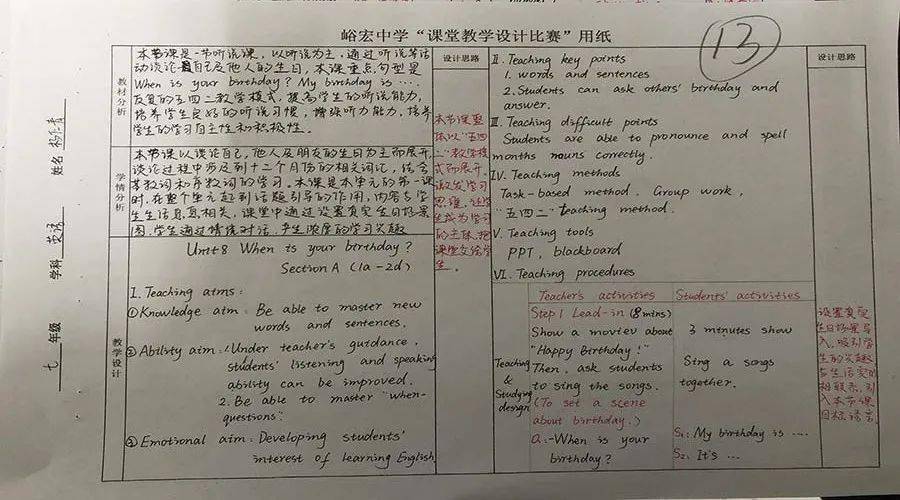 峪宏中学“课堂教学设计比赛”用纸
13
七 年级
学科 英语
姓名
教材分析
本节课是一节听说课，以听说为主，通过听说等活
动谈论自己及他人的生日，本课重点句型是
When is your birthday? My birthday is ...
五四二教学模式，提高学生的听说能力，
培养学生良好的听说习惯，增强听力能力，培养
学生的学习自主性和积极性。
学情分析
本节课以谈论自己，他人及朋友的生日为主而展开，
谈论过程中涉及到十二个月份的相关词汇，
基数词和序数词的学习。本课是本单元的第一课
时，在整个单元起到话题引导的作用，内容与学
生生活息息相关，课堂中通过设置真实生日场景
图，学生通过情境对话，产生浓厚的学习兴趣
教学设计
Unit 8 When is your birthday?
Section A (1a-2d)
I. Teaching aims:
①Knowledge aim: Be able to master new
words and sentences.
②Ability aim: 1.Under teacher's guidance,
students' listening and speaking
ability can be improved.
2. Be able to master "when-
questions".
③Emotional aim: Developing students'
interest of learning English
设计思路
本节课重
以“五四
二”教学模
式而展开，
激发学习
思维，让学
生成为学习
的主体，把
课堂交给学
生。
II. Teaching key points
1. words and sentences
2. Students can ask others' birthday and
answer.
III. Teaching difficult points
Students are able to pronounce and spell
months nouns correctly.
IV. Teaching methods
Task-based method. Group work,
"五四二" teaching method.
V. Teaching tools
PPT, blackboard
VI. Teaching procedures
Teaching & Studying design
Teacher's activities
Step 1 Lead-in (8 mins)
Show a moviev about
"Happy Birthday!"
Then, ask students
to sing the songs.
(To set a scene
about birthday.)
Q:-When is your
birthday?
Students' activities
3 minutes show
Sing a songs
together.
S1: My birthday is ....
S2: It's ...
设计思路
设置真实
生日场景导
入，吸引学
生的兴趣
与生活实际
相联系，引
入本节课
目标语言